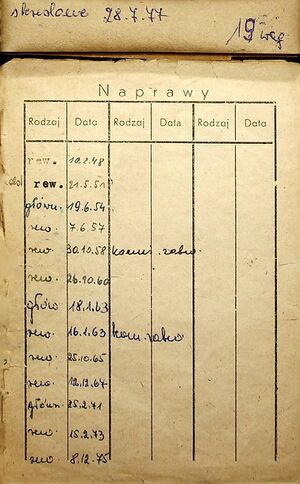 skreślono 28.7.77
19
Naprawy
Rodzaj Data Rodzaj Data Rodzaj Data
rew. 10.2.48
rew. 21.5.51
główn. 19.6.54
rew. 7.6.57
rew. 30.10.58
rew. 26.10.60
główn 18.1.63
rew. 16.1.63
rew. 25.10.65
rew. 12.12.67
główn. 25.2.71
rew. 15.2.73
rew 8.12.75